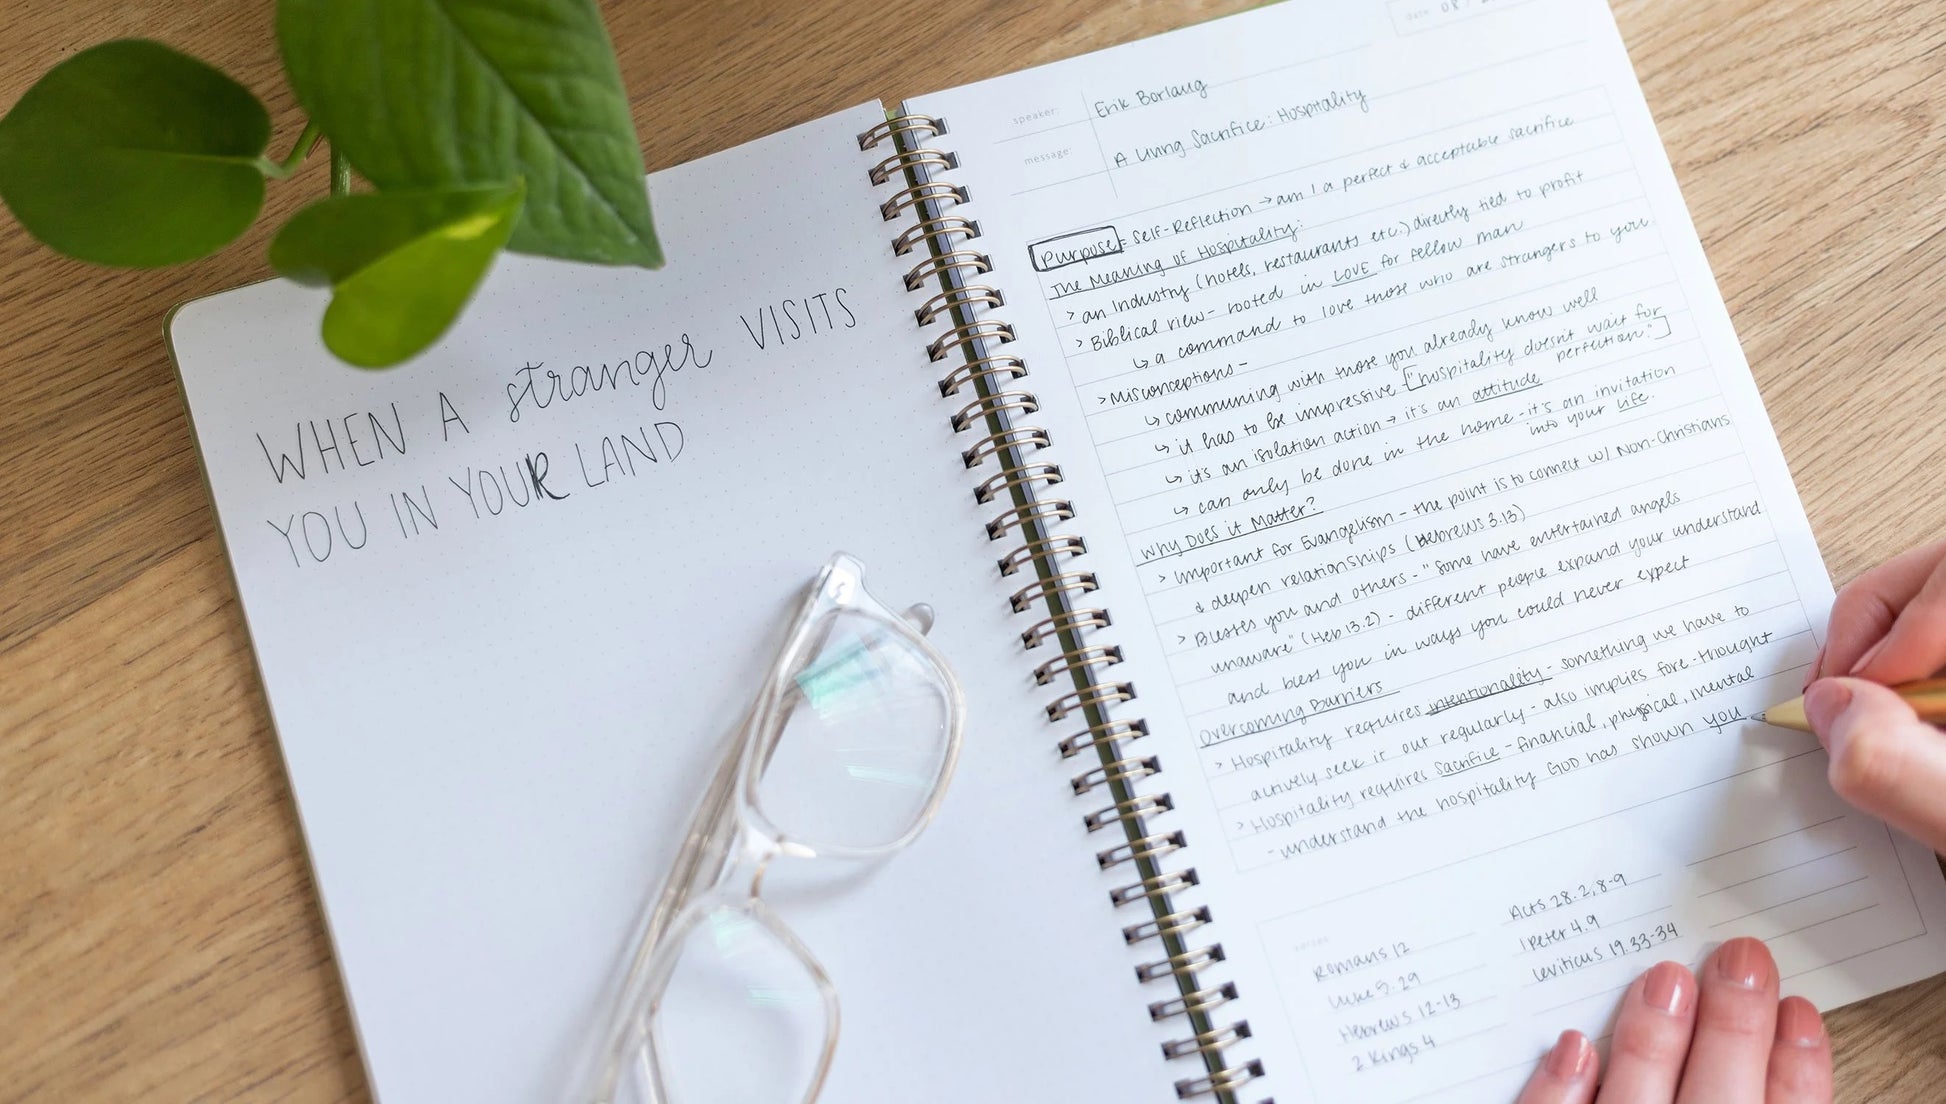 WHEN A stranger VISITS
YOU IN YOUR LAND
Date: 08 / 2
speaker: Erik Borlaug
message: A Living Sacrifice: Hospitality
Purpose = Self-Reflection → am I a perfect & acceptable sacrifice
The Meaning of Hospitality:
> an Industry (hotels, restaurants etc.) directly tied to profit
> Biblical view - rooted in LOVE for fellow man
↳ a command to love those who are strangers to you.
> Misconceptions -
↳ communing with those you already know well
↳ it has to be impressive ["hospitality doesn't wait for
perfection."]
↳ it's an isolation action → it's an attitude
↳ can only be done in the home - it's an invitation
into your life.
Why Does it Matter?
> Important for Evangelism - the point is to connect w/ Non-Christians
& deepen relationships (Hebrews 3.13)
> Blesses you and others - "Some have entertained angels
unaware" (Heb 13.2) - different people expand your understand
and bless you in ways you could never expect
Overcoming Barriers
> Hospitality requires intentionality - something we have to
actively seek it out regularly - also implies fore-thought
> Hospitality requires Sacrifice - financial, physical, mental
- understand the hospitality GOD has shown you
verses:
Romans 12
Luke 5.29
Hebrews 12-13
2 Kings 4
Acts 28.2, 8-9
1 Peter 4.9
Leviticus 19.33-34